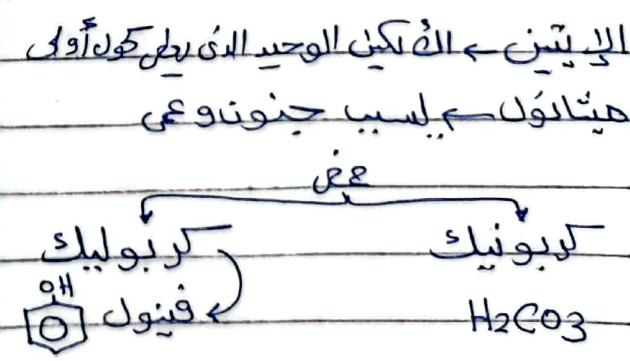 الإيثين ← الألكين الوحيد الذى يعطى كحول أولى
ميثانول ← يسبب جنون وعمى
حمض
كربونيك كربوليك
H2CO3 فينول OH